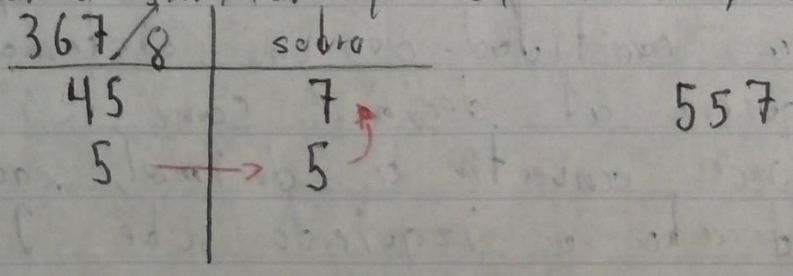 367/8 sobra
45 7
5 5
557